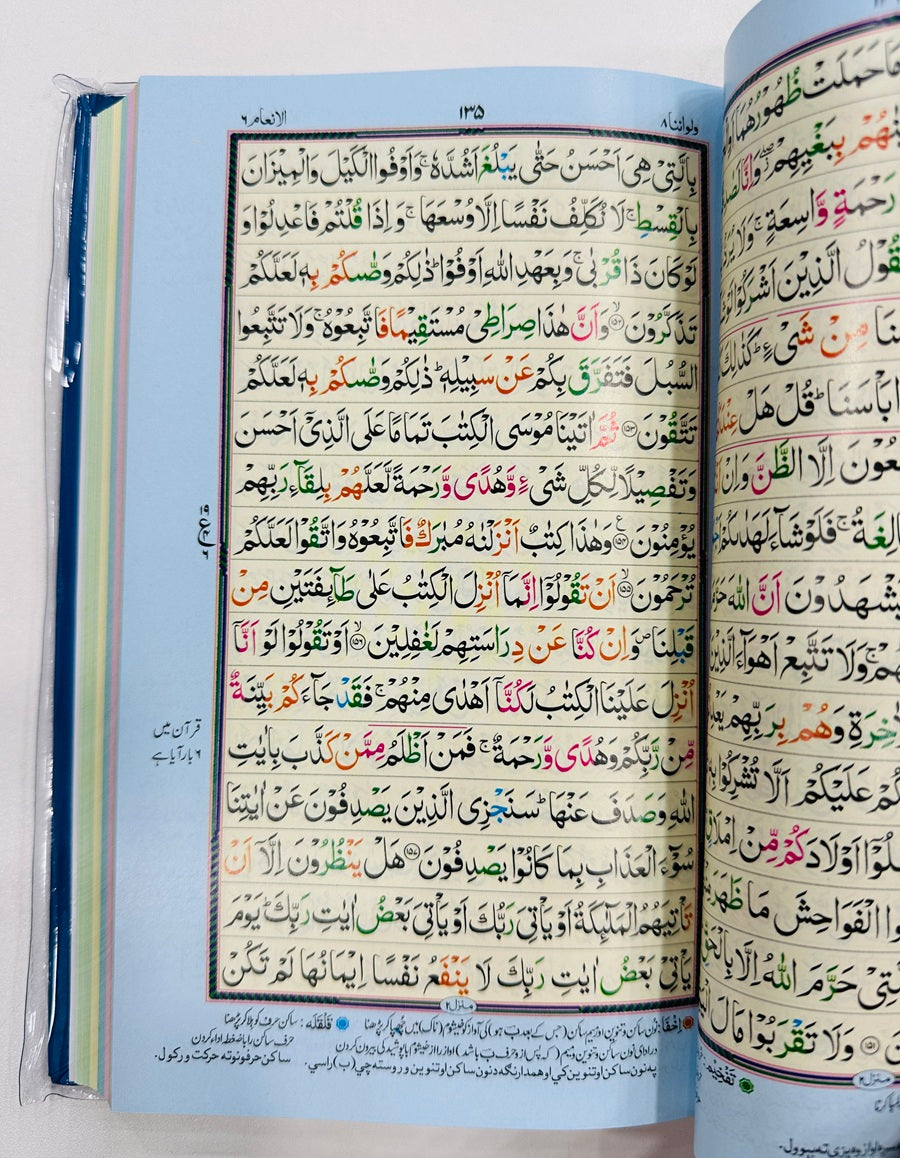 ولواننا ۸
۱۳۵
الانعام ۶
بِالَّتِیْ هِیَ اَحْسَنُ حَتّٰی یَبْلُغَ اَشُدَّهٗ ۚ وَاَوْفُوا الْكَیْلَ وَالْمِیْزَانَ
بِالْقِسْطِ ۚ لَا نُكَلِّفُ نَفْسًا اِلَّا وُسْعَهَا ۚ وَاِذَا قُلْتُمْ فَاعْدِلُوْا وَ
لَوْ كَانَ ذَا قُرْبٰی ۚ وَبِعَهْدِ اللّٰهِ اَوْفُوْا ؕ ذٰلِكُمْ وَصّٰىكُمْ بِهٖ لَعَلَّكُمْ
تَذَكَّرُوْنَ ۙ﴿۱۵۲﴾ وَاَنَّ هٰذَا صِرَاطِیْ مُسْتَقِیْمًا فَاتَّبِعُوْهُ ۚ وَلَا تَتَّبِعُوا
السُّبُلَ فَتَفَرَّقَ بِكُمْ عَنْ سَبِیْلِهٖ ؕ ذٰلِكُمْ وَصّٰىكُمْ بِهٖ لَعَلَّكُمْ
تَتَّقُوْنَ ﴿۱۵۳﴾ ثُمَّ اٰتَیْنَا مُوْسَی الْكِتٰبَ تَمَامًا عَلَی الَّذِیْۤ اَحْسَنَ
وَتَفْصِیْلًا لِّكُلِّ شَیْءٍ وَّهُدًی وَّرَحْمَةً لَّعَلَّهُمْ بِلِقَآءِ رَبِّهِمْ
یُؤْمِنُوْنَ ۠﴿۱۵۴﴾ وَهٰذَا كِتٰبٌ اَنْزَلْنٰهُ مُبٰرَكٌ فَاتَّبِعُوْهُ وَاتَّقُوْا لَعَلَّكُمْ
تُرْحَمُوْنَ ۙ﴿۱۵۵﴾ اَنْ تَقُوْلُوْۤا اِنَّمَاۤ اُنْزِلَ الْكِتٰبُ عَلٰی طَآئِفَتَیْنِ مِنْ
قَبْلِنَا ۪ وَاِنْ كُنَّا عَنْ دِرَاسَتِهِمْ لَغٰفِلِیْنَ ۙ﴿۱۵۶﴾ اَوْ تَقُوْلُوْا لَوْ اَنَّاۤ
اُنْزِلَ عَلَیْنَا الْكِتٰبُ لَكُنَّاۤ اَهْدٰی مِنْهُمْ ۚ فَقَدْ جَآءَكُمْ بَیِّنَةٌ
مِّنْ رَّبِّكُمْ وَهُدًی وَّرَحْمَةٌ ۚ فَمَنْ اَظْلَمُ مِمَّنْ كَذَّبَ بِاٰیٰتِ
اللّٰهِ وَصَدَفَ عَنْهَا ؕ سَنَجْزِی الَّذِیْنَ یَصْدِفُوْنَ عَنْ اٰیٰتِنَا
سُوْٓءَ الْعَذَابِ بِمَا كَانُوْا یَصْدِفُوْنَ ﴿۱۵۷﴾ هَلْ یَنْظُرُوْنَ اِلَّاۤ اَنْ
تَاْتِیَهُمُ الْمَلٰٓئِكَةُ اَوْ یَاْتِیَ رَبُّكَ اَوْ یَاْتِیَ بَعْضُ اٰیٰتِ رَبِّكَ ؕ یَوْمَ
یَاْتِیْ بَعْضُ اٰیٰتِ رَبِّكَ لَا یَنْفَعُ نَفْسًا اِیْمَانُهَا لَمْ تَكُنْ
منزل ۲
قرآن میں
۶ بار آیا ہے
اِخْفَا: نون ساکن و تنوین اور میم ساکن (جس کے بعد ب ہو) کی آواز کو خیشوم (ناک) میں چھپا کر پڑھنا
قَلْقَلَه: ساکن حرف کو ہلا کر پڑھنا
حرف ساکن را با ضغطه ادا کردن
ساکن حرفونو ته حرکت ورکول.
مَا حَمَلَتْ ظُهُوْرُهُمَا
بِبَغْیِهِمْ ۖ وَاِنَّا
رَحْمَةٍ وَّاسِعَةٍ ۚ وَلَا
الَّذِیْنَ اَشْرَكُوْا
مِنْ شَیْءٍ ؕ كَذٰلِكَ
بَاْسَنَا ؕ قُلْ هَلْ
اِلَّا الظَّنَّ وَاِنْ
فَلَوْ شَآءَ لَهَدٰىكُمْ
اَنَّ اللّٰهَ
وَلَا تَتَّبِعْ اَهْوَآءَ الَّذِیْنَ
وَهُمْ بِرَبِّهِمْ
عَلَیْكُمْ اَلَّا تُشْرِكُوْا
اَوْلَادَكُمْ مِّنْ
الْفَوَاحِشَ مَا ظَهَرَ
حَرَّمَ اللّٰهُ اِلَّا بِالْحَقِّ
﴿۱۵۱﴾ وَلَا تَقْرَبُوْا مَالَ
منزل ۲
تَفْخِیْم: